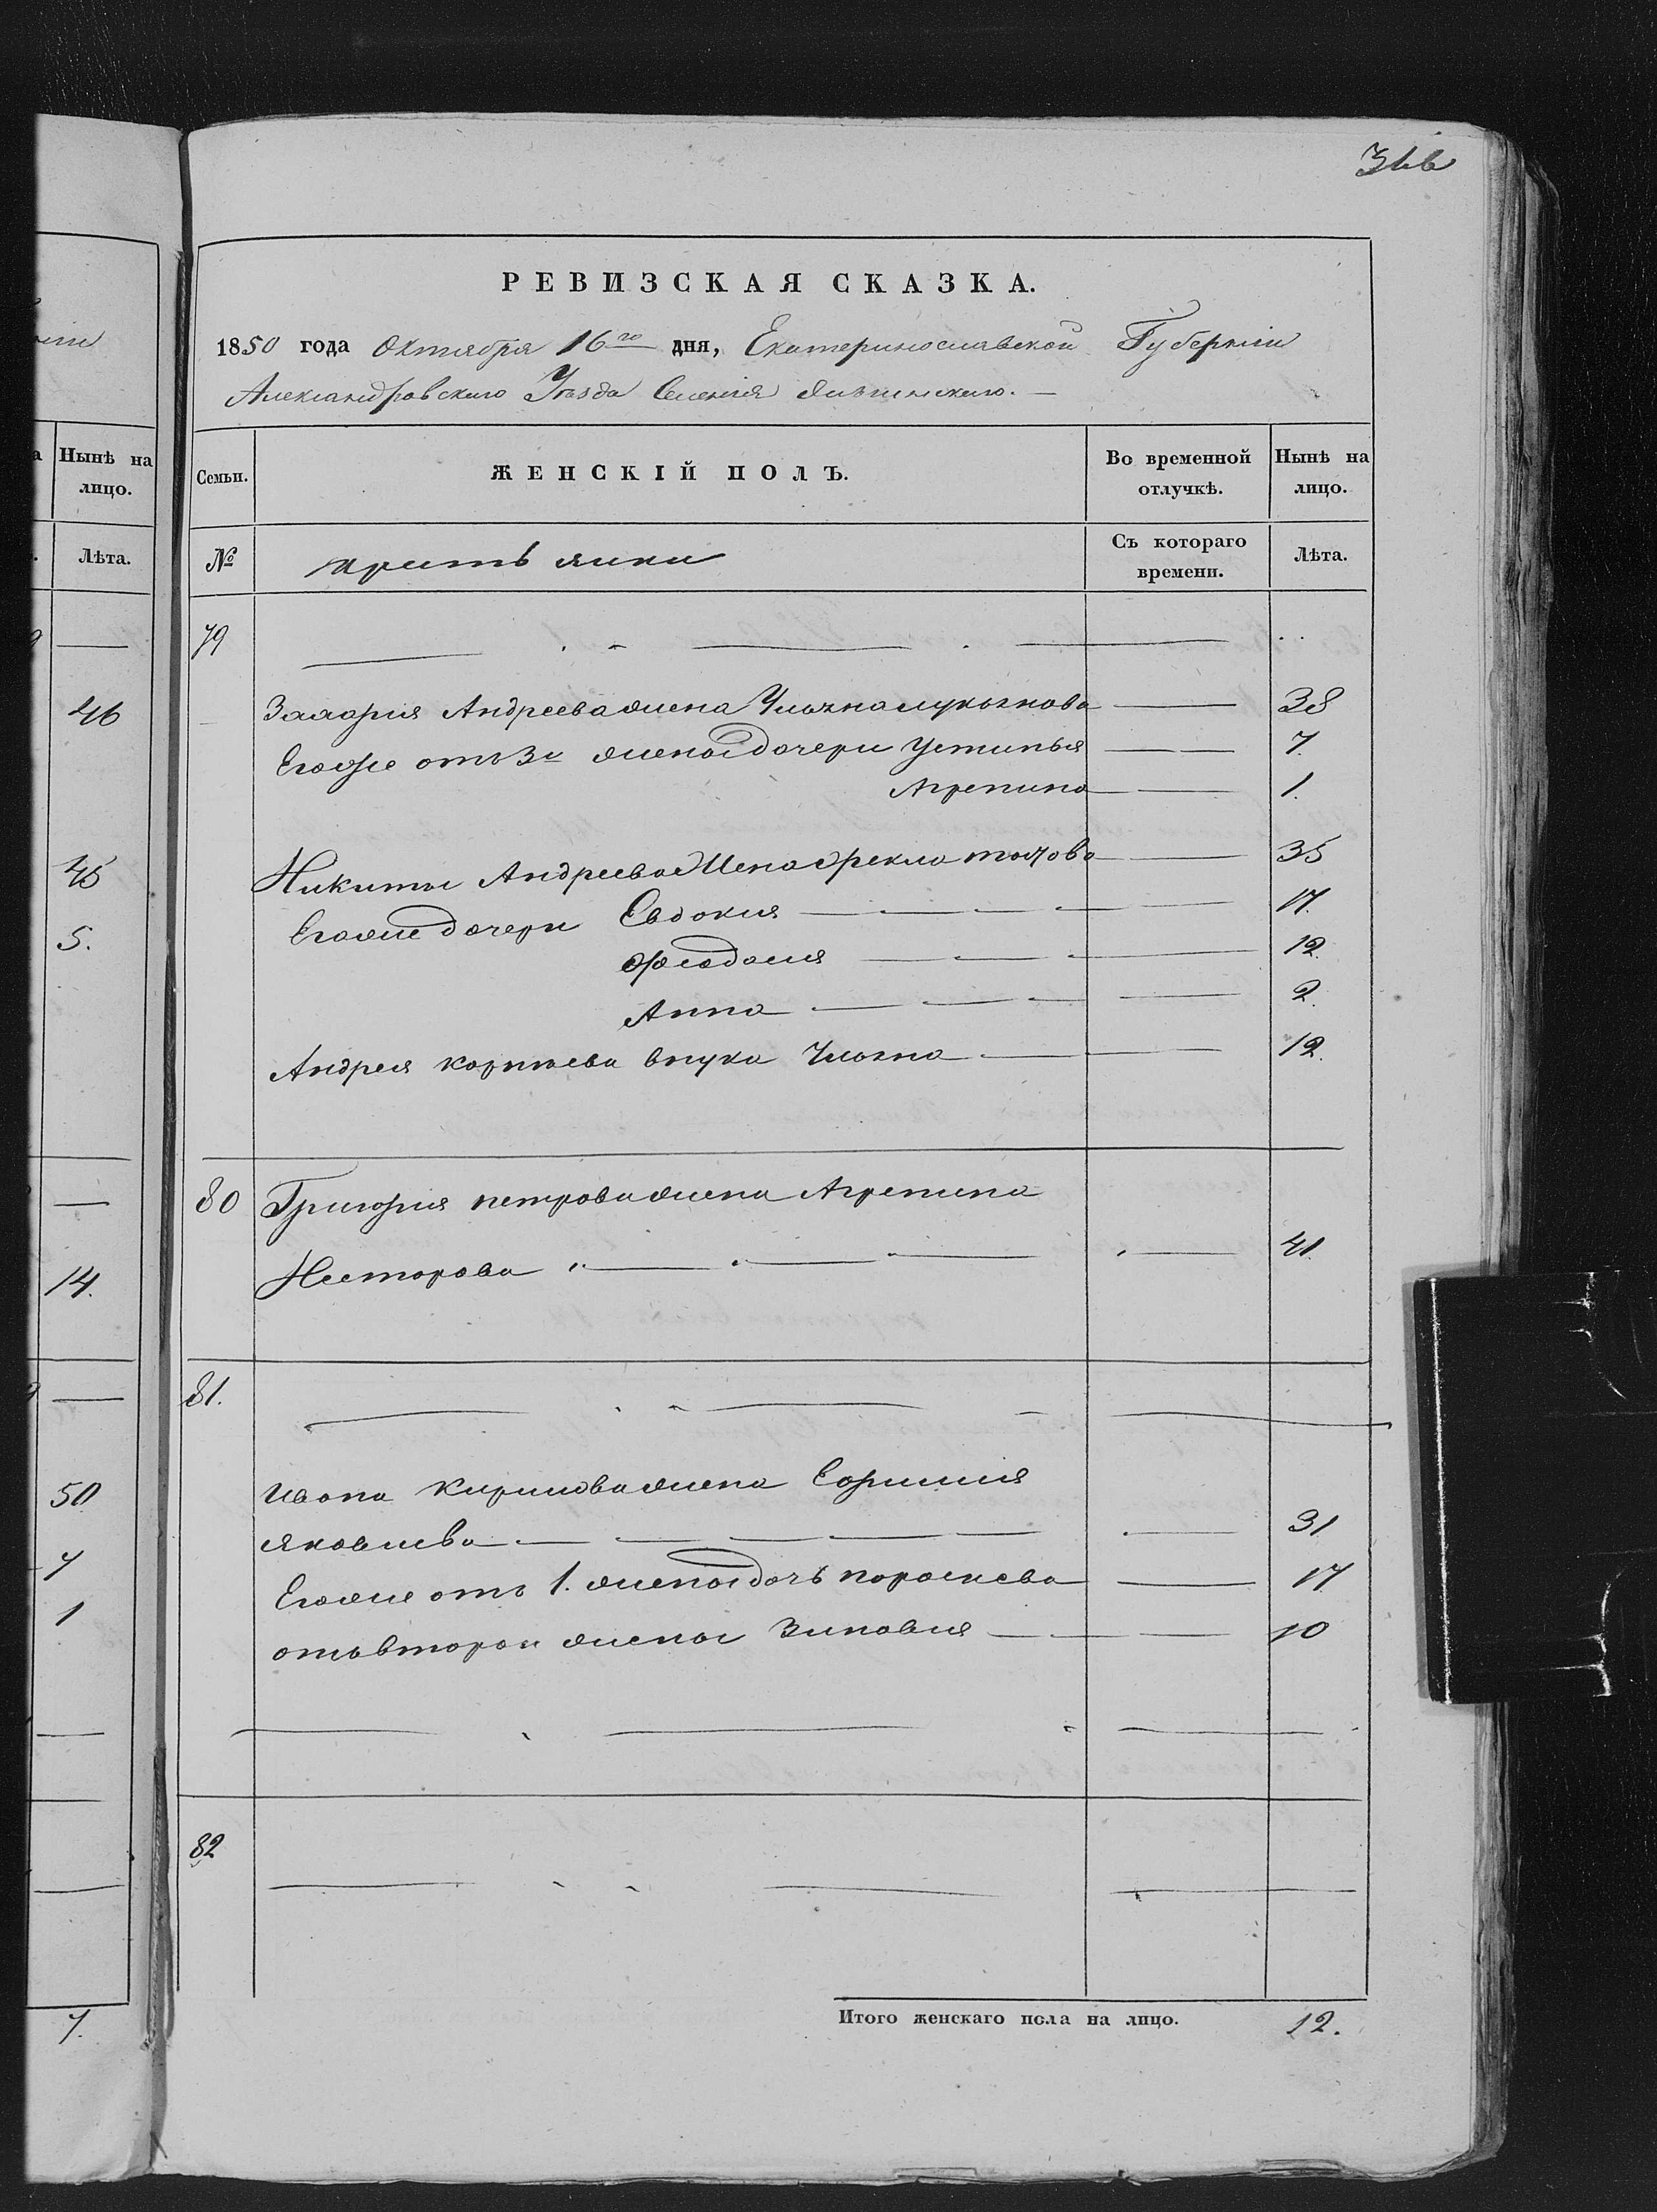 РЕВИЗСКАЯ СКАЗКА.
1850 года Октября 16го дня, Екатеринославской Губернiи
Александровского Уѣзда Селенiя
Нынѣ на лицо.
Лѣта.
46
45
5.
14.
50
7
1
7.
Семьи.
ЖЕНСКIЙ ПОЛЪ.
Во временной отлучкѣ.
Нынѣ на лицо.
№
крестьянки
Съ котораго времени.
Лѣта.
79
Захарiя Андреева жена Ульяна Лукьянова 38
Егоже отъ 3й жены дочери Устинья 7.
Агрепина 1.
Никиты Андреева жена Фекла 35
Егоже дочери Евдокия 17.
Феодосия 12.
Анна 2.
Андрея Корнѣева внука Ульяна 12.
80 Григория петрова жена Агрепина
Несторова 41
81.
Ивана Кирилова жена Ефимия
Яковлева 31
Егоже отъ 1. жены дочь параскева 17
отъ второй жены Зиновия 10
82
Итого женскаго пола на лицо. 12.